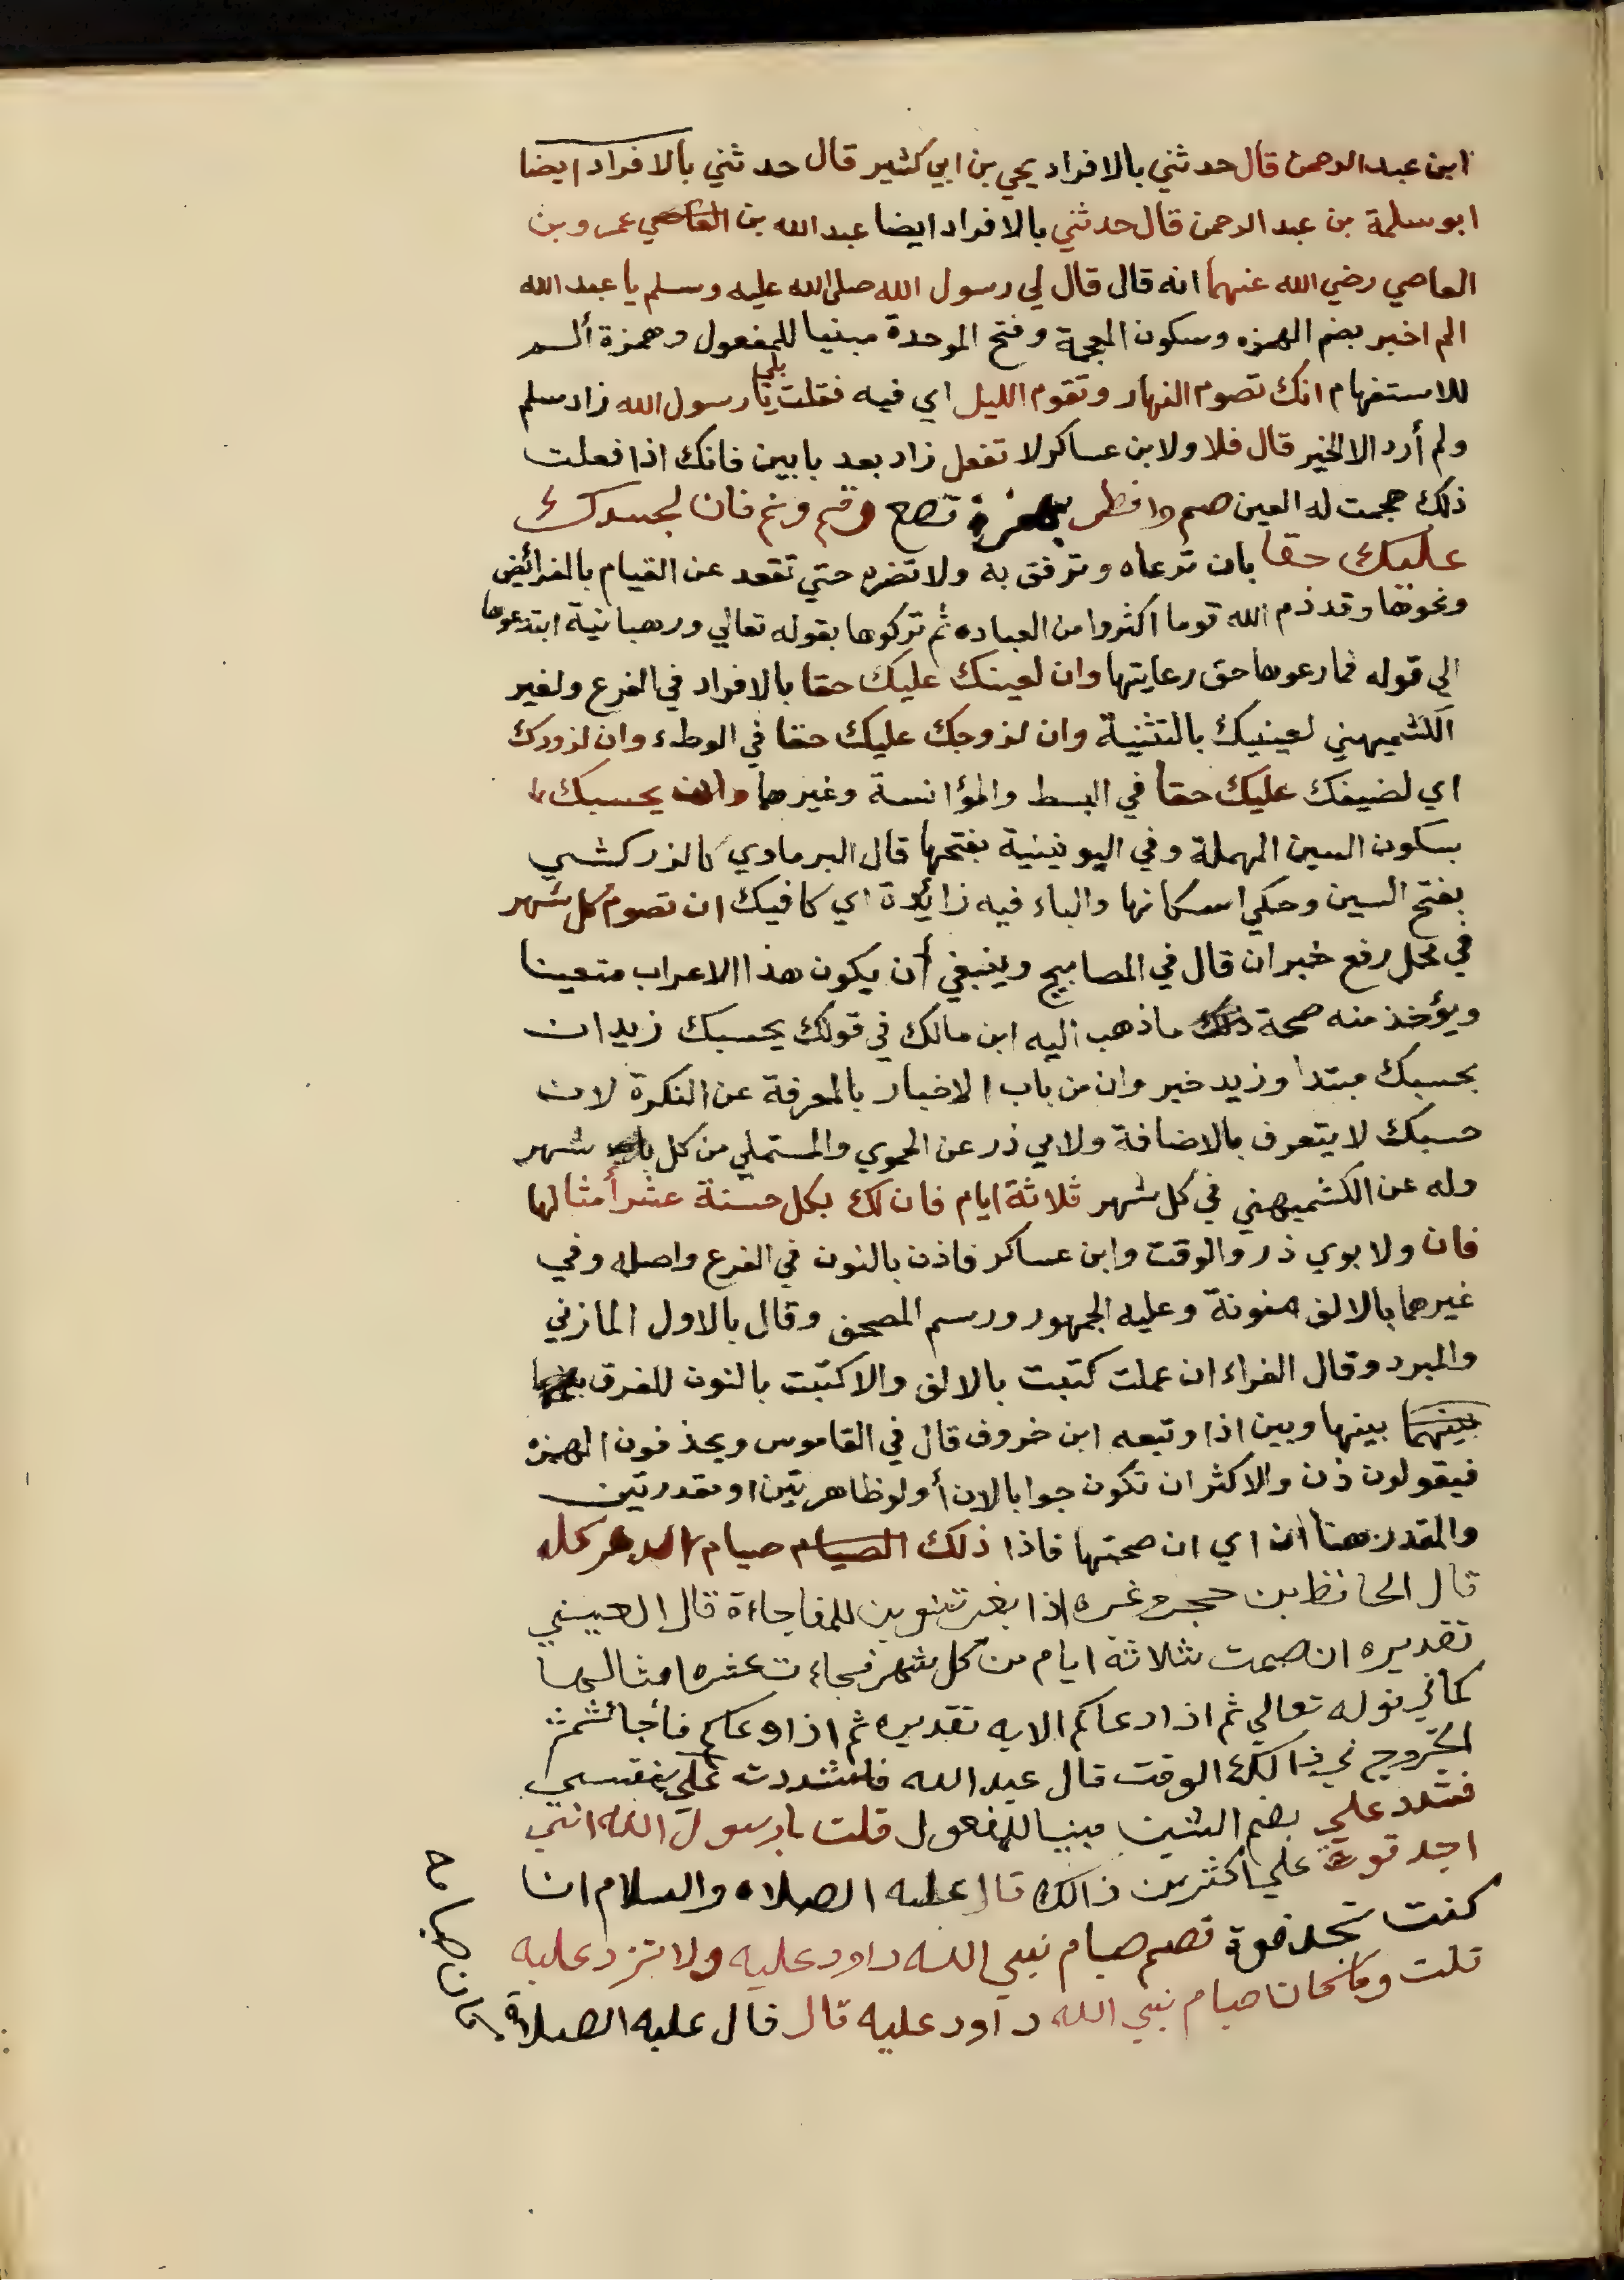 ابن عبد الرحمن قال حدثني بالافراد يحي بن ابي كثير قال حدثني بالافراد ايضا
ابو سلمة بن عبد الرحمن قال حدثني بالافراد ايضا عبد الله بن العاصي عمرو بن
العاصي رضي الله عنهما انه قال قال لي رسول الله صلى الله عليه وسلم يا عبد الله
الم اخبر بضم الهمزه وسكون المعجمة وفتح الموحدة مبنيا للمفعول وهمزة ألم
للاستفهام انك تصوم النهار وتقوم الليل اي فيه فقلت بلي يا رسول الله زاد مسلم
ولم أرد الا الخير قال فلا ولابن عساكر لا تفعل زاد بعد بابين فانك اذا فعلت
ذلك هجمت له العين صم وافطر بهمزة قطع وقم ونم فان لجسدك
عليك حقا بان ترعاه وترفق به ولا تضره حتي تقعد عن القيام بالفرائض
ونحوها وقد ذم الله قوما اكثروا من العباده ثم تركوها بقوله تعالي ورهبانية ابتدعوها
الي قوله فما رعوها حق رعايتها وان لعينك عليك حقا بالافراد في الفرع ولغير
الكشميهني لعينيك بالتثنية وان لزوجك عليك حقا في الوطء وان لزورك
اي لضيفك عليك حقا في البسط والمؤانسة وغيرهما وان بحسبك
بسكون السين المهملة وفي اليونينية بفتحها قال البرماوي كالزركشي
بفتح السين وحكي اسكانها والباء فيه زائدة اي كافيك ان تصوم كل شهر
في محل رفع خبر ان قال في المصابيح وينبغي أن يكون هذا الاعراب متعينا
ويؤخذ منه صحة ذلك ما ذهب اليه ابن مالك في قولك بحسبك زيد ان
بحسبك مبتدا وزيد خبر وان من باب الاخبار بالمعرفة عن النكرة لان
حسبك لا يتعرف بالاضافة ولابي ذر عن الحموي والمستملي من كل شهر
وله عن الكشميهني في كل شهر ثلاثة ايام فان لك بكل حسنة عشر أمثالها
فان ولابوي ذر والوقت وابن عساكر فاذن بالنون في الفرع واصله وفي
غيرهما بالالف منونة وعليه الجمهور ورسم المصحف وقال بالاول المازني
والمبرد وقال الفراء ان عملت كتبت بالالف والا كتبت بالنون للفرق
بينهما بينها وبين اذا وتبعه ابن خروف قال في القاموس ويحذفون الهمزه
فيقولون ذن والاكثر ان تكون جوابا لان أو لو ظاهرتين او مقدرتين
والمقدر هنا ان اي ان صمتها فاذا ذلك الصيام صيام الدهر كله
قال الحافظ بن حجر وغيره اذا بغير تنوين للمفاجاءة قال العيني
تقديره ان صمت ثلاثة ايام من كل شهر فجاءت عشره امثالها
كما في قوله تعالي ثم اذا دعاكم الايه تقديره ثم اذا دعاكم فأجائتم
الخروج في ذالك الوقت قال عبد الله فاشددت علي نفسي
فشدد علي بضم الشين مبنيا للمفعول قلت يا رسول الله اني
اجد قوة علي اكثر من ذالك قال عليه الصلاه والسلام ان
كنت تجد قوة فصم صيام نبي الله داود عليه ولا تزد عليه
قلت وما كان صيام نبي الله داود عليه قال قال عليه الصلاة
كان صيامه